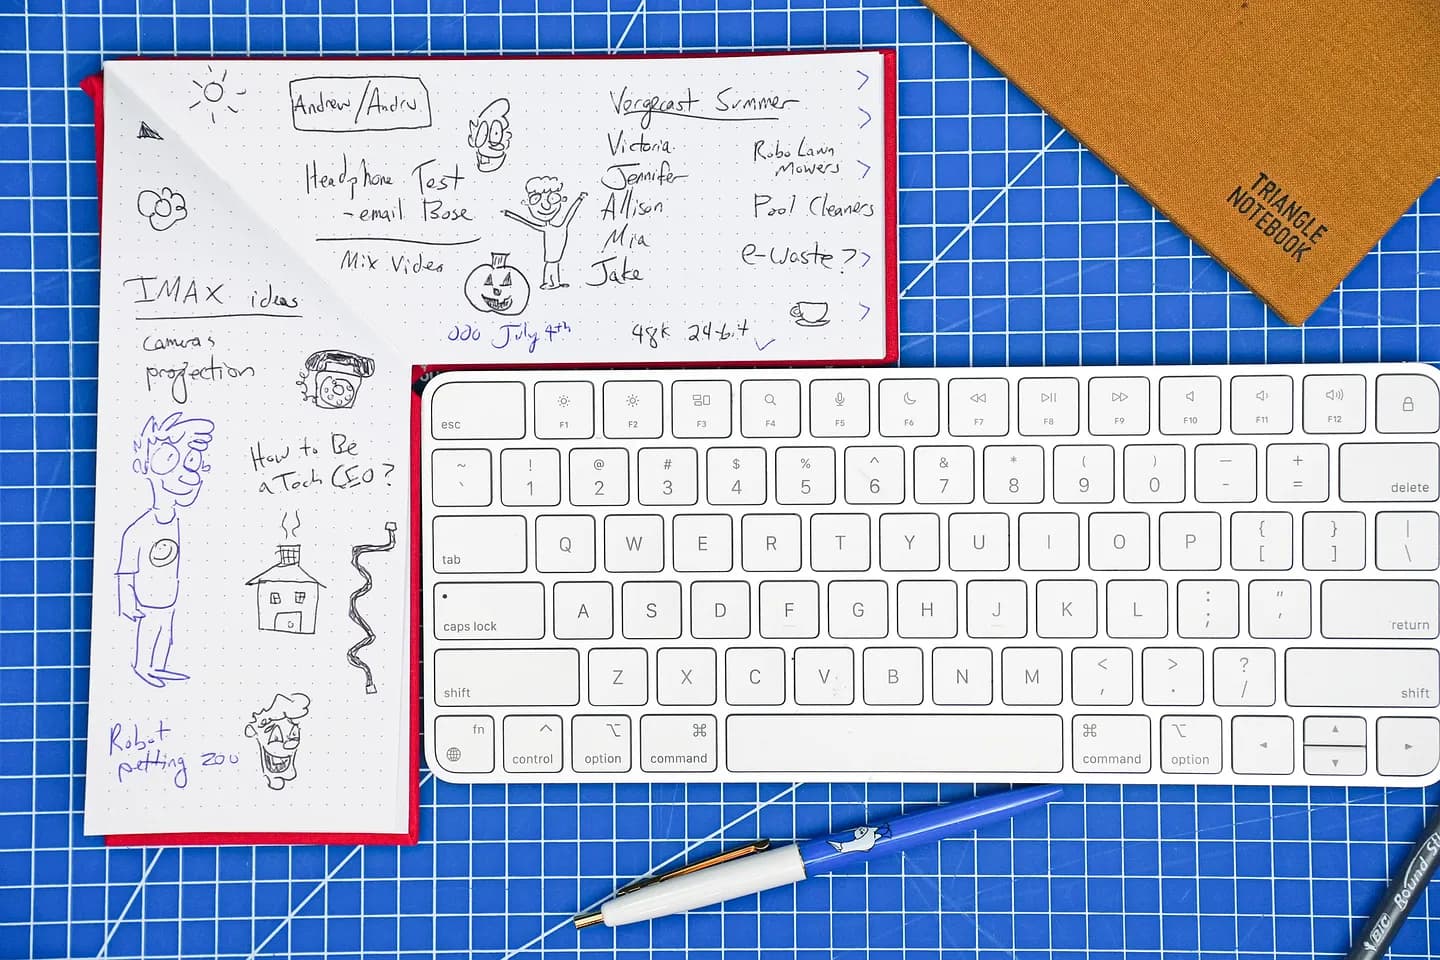 Andrew/Andru
Headphone Test
- email Bose
Mix Video
OOO July 4th
Vergecast Summer
Victoria
Jennifer
Allison
Mia
Jake
48k 24-bit
Robo Lawn
Mowers
Pool Cleaners
e-waste?
IMAX ideas
cameras
projection
How to Be
a Tech CEO?
Robot
petting zoo
TRIANGLE
NOTEBOOK
esc F1 F2 F3 F4 F5 F6 F7 F8 F9 F10 F11 F12
~ ! @ # $ % ^ & * ( ) — +
` 1 2 3 4 5 6 7 8 9 0 - = delete
tab Q W E R T Y U I O P { [ } ] | \
caps lock A S D F G H J K L : ; " ' return
shift Z X C V B N M < , > . ? / shift
fn control option command command option
BIC Round St